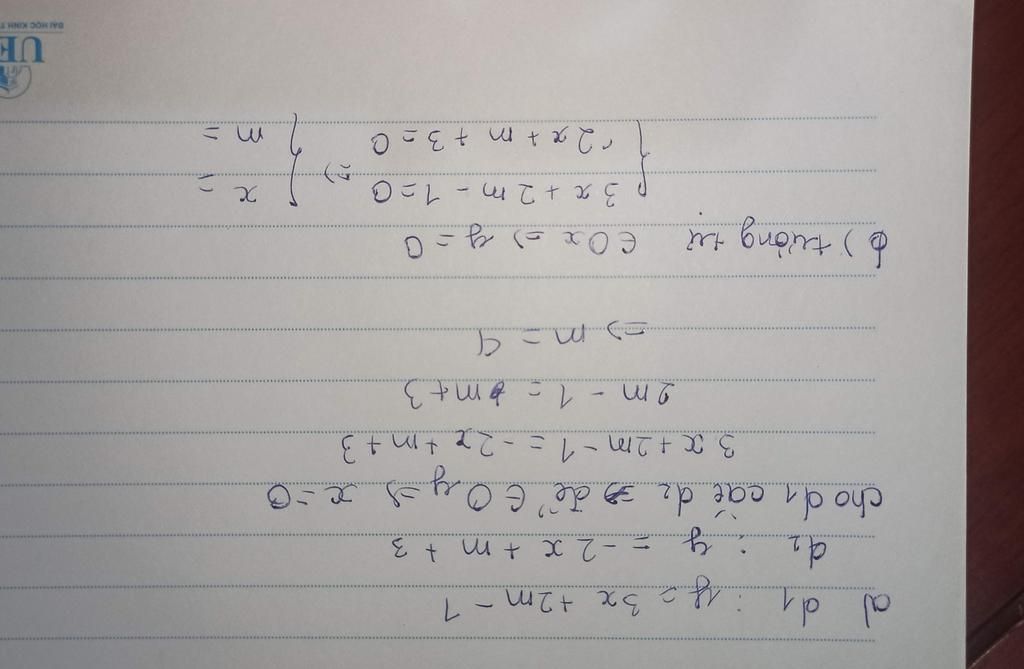 a) d1 : y = 3x + 2m - 1
d2 : y = -2x + m + 3
cho d1 cắt d2 để ∈ Oy => x = 0
3x + 2m - 1 = -2x + m + 3
2m - 1 = m + 3
=> m = 4
b) tương tự ∈ Ox => y = 0
{ 3x + 2m - 1 = 0 => { x =
{ -2x + m + 3 = 0 { m =
UE
ĐẠI HỌC KINH T